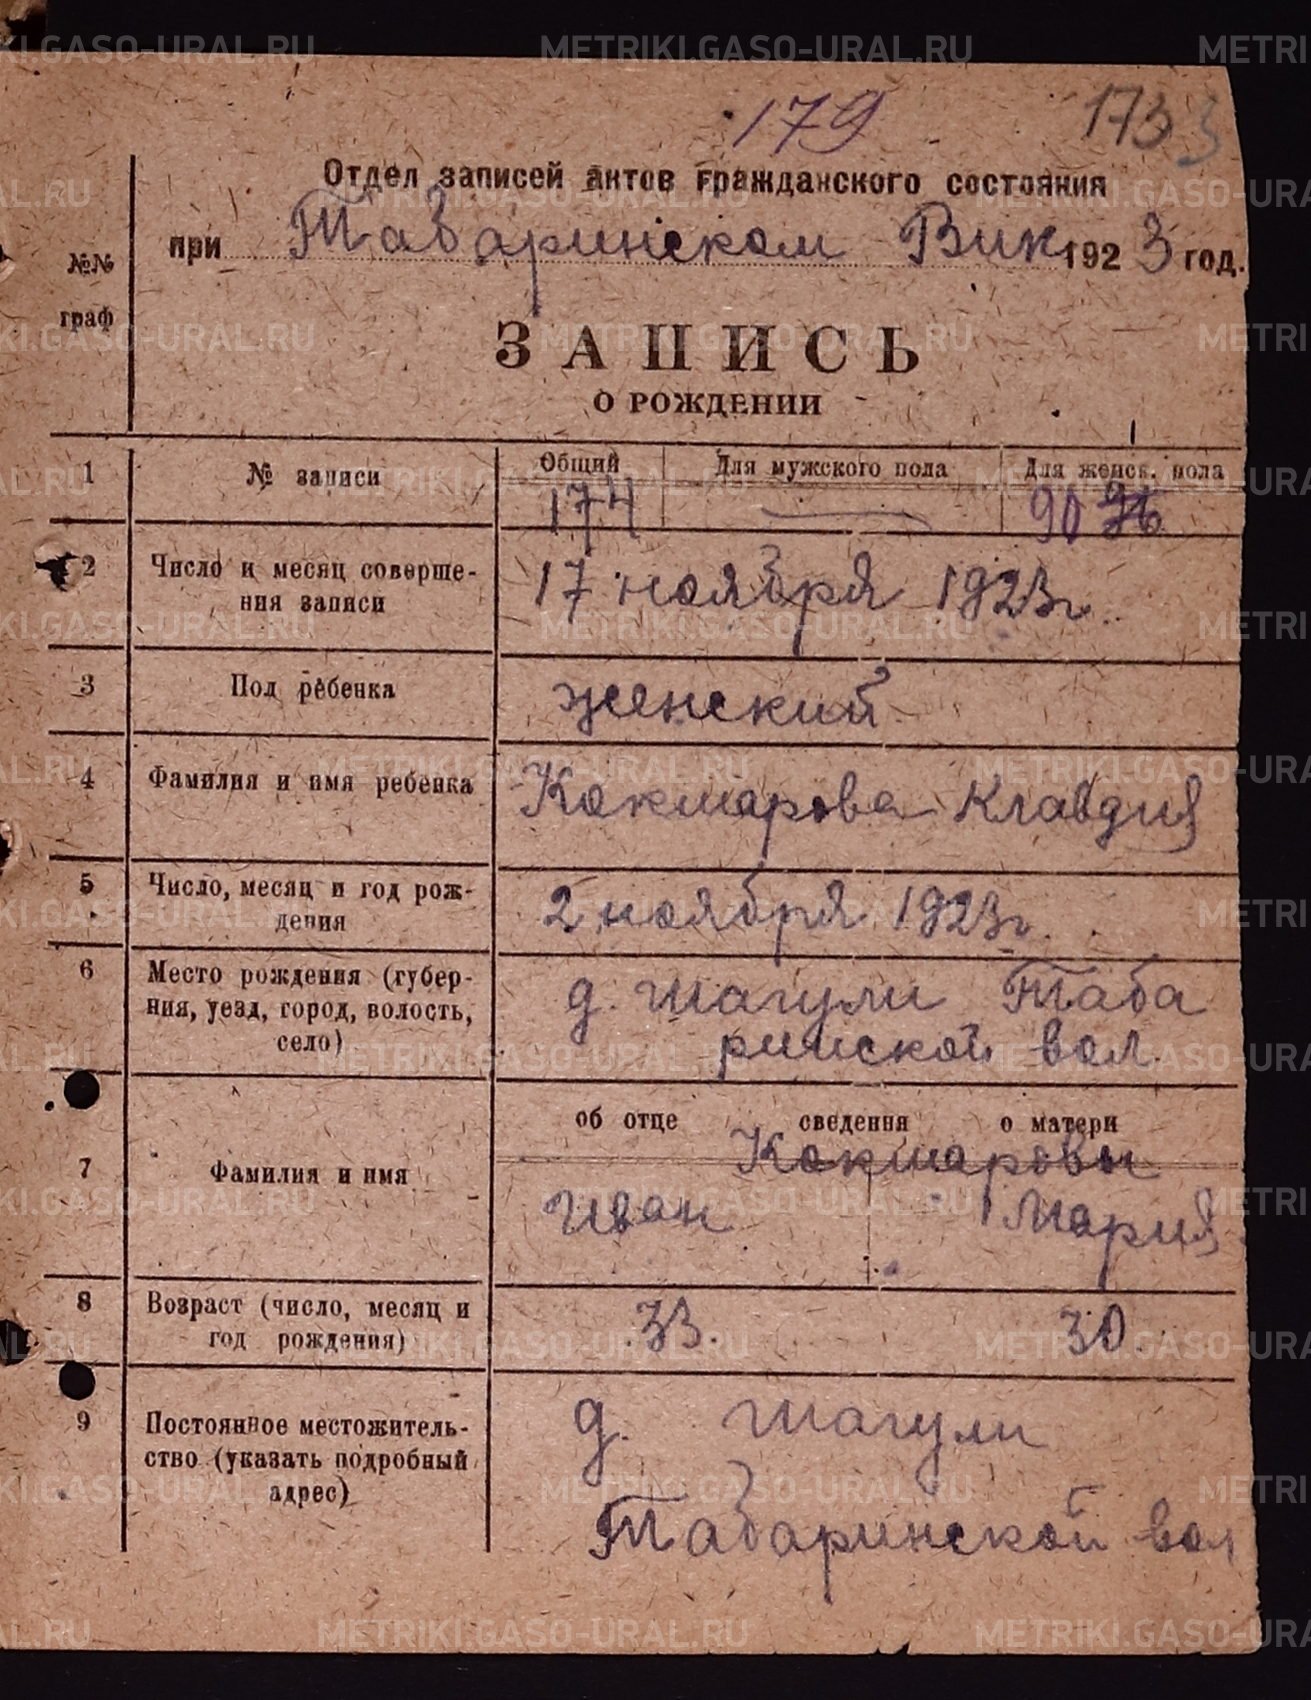 179 1733
Отдел записей актов гражданского состояния
при Табаринском Вик 1923 год.
№№
граф
ЗАПИСЬ
О РОЖДЕНИИ
1 № записи Общий Для мужского пола Для женск. пола
174 — 90
2 Число и месяц соверше-
ния записи
17 ноября 1923г.
3 Пол ребенка женский
4 Фамилия и имя ребенка Кокшарова Клавдия
5 Число, месяц и год рож-
дения
2 ноября 1923г.
6 Место рождения (губер-
ния, уезд, город, волость,
село)
д. Шагули Таба
ринской вол.
об отце сведения о матери
7 Фамилия и имя Кокшаровы
Иван Мария
8 Возраст (число, месяц и
год рождения)
33. 30.
9 Постоянное местожитель-
ство (указать подробный
адрес)
д. Шагули
Табаринской вол
METRIKI.GASO-URAL.RU